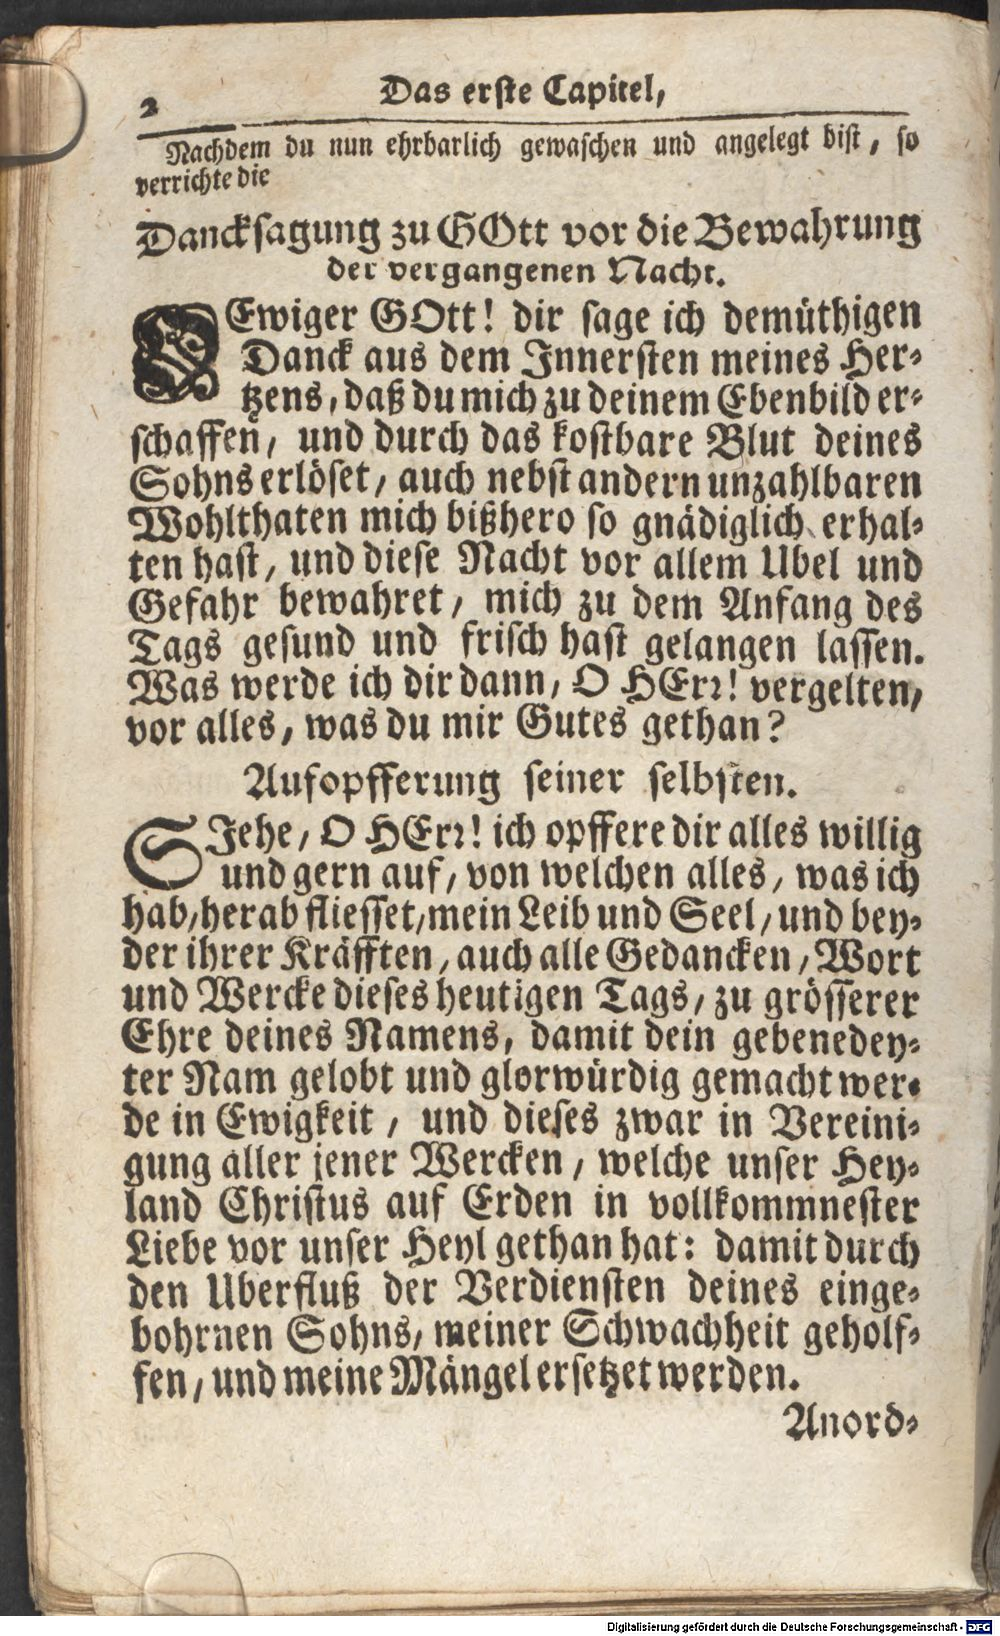 2
Das erste Capitel,
Nachdem du nun ehrbarlich gewaschen und angelegt bist, so
verrichte die
Dancksagung zu GOtt vor die Bewahrung
der vergangenen Nacht.
O Ewiger GOtt! dir sage ich demüthigen
Danck aus dem Innersten meines Her-
tzens, daß du mich zu deinem Ebenbild er-
schaffen, und durch das kostbare Blut deines
Sohns erlöset, auch nebst andern unzahlbaren
Wohlthaten mich bißhero so gnädiglich erhal-
ten hast, und diese Nacht vor allem Ubel und
Gefahr bewahret, mich zu dem Anfang des
Tags gesund und frisch hast gelangen lassen.
Was werde ich dir dann, O HErr! vergelten,
vor alles, was du mir Gutes gethan?
Aufopfferung seiner selbsten.
SIehe, O HErr! ich opffere dir alles willig
und gern auf, von welchen alles, was ich
hab, herab fliesset, mein Leib und Seel, und bey-
der ihrer Kräfften, auch alle Gedancken, Wort
und Wercke dieses heutigen Tags, zu grösserer
Ehre deines Namens, damit dein gebenedey-
ter Nam gelobt und glorwürdig gemacht wer-
de in Ewigkeit, und dieses zwar in Vereini-
gung aller jener Wercken, welche unser Hey-
land Christus auf Erden in vollkommnester
Liebe vor unser Heyl gethan hat: damit durch
den Uberfluß der Verdiensten deines einge-
bohrnen Sohns, meiner Schwachheit geholf-
fen, und meine Mängel ersetzet werden.
Anord-
Digitalisierung gefördert durch die Deutsche Forschungsgemeinschaft - DFG